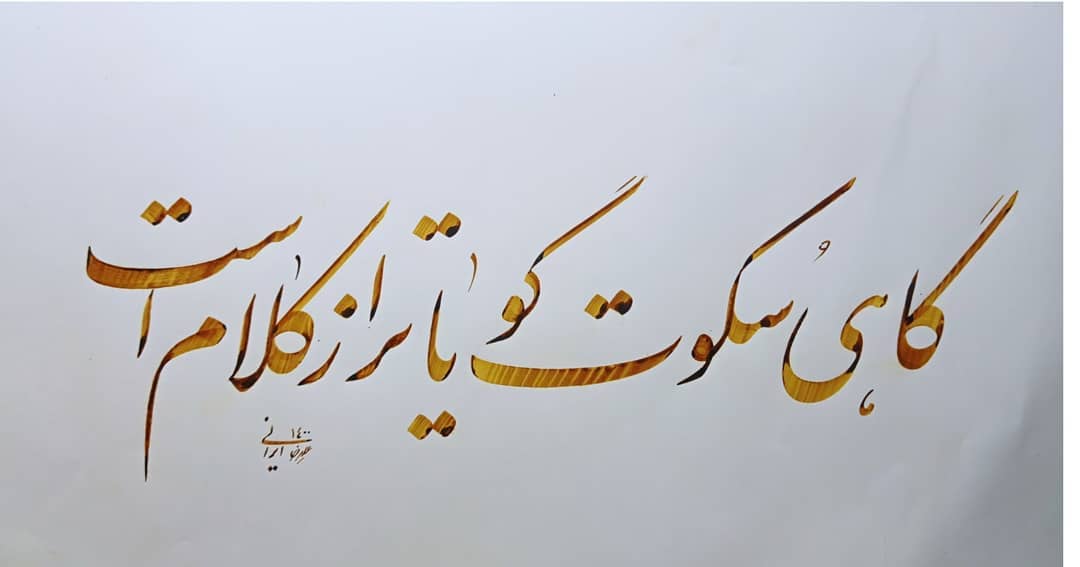 گاهی سُکوت گویاتر از کلام است
علیرضا ایرانی ۱۴۰۰